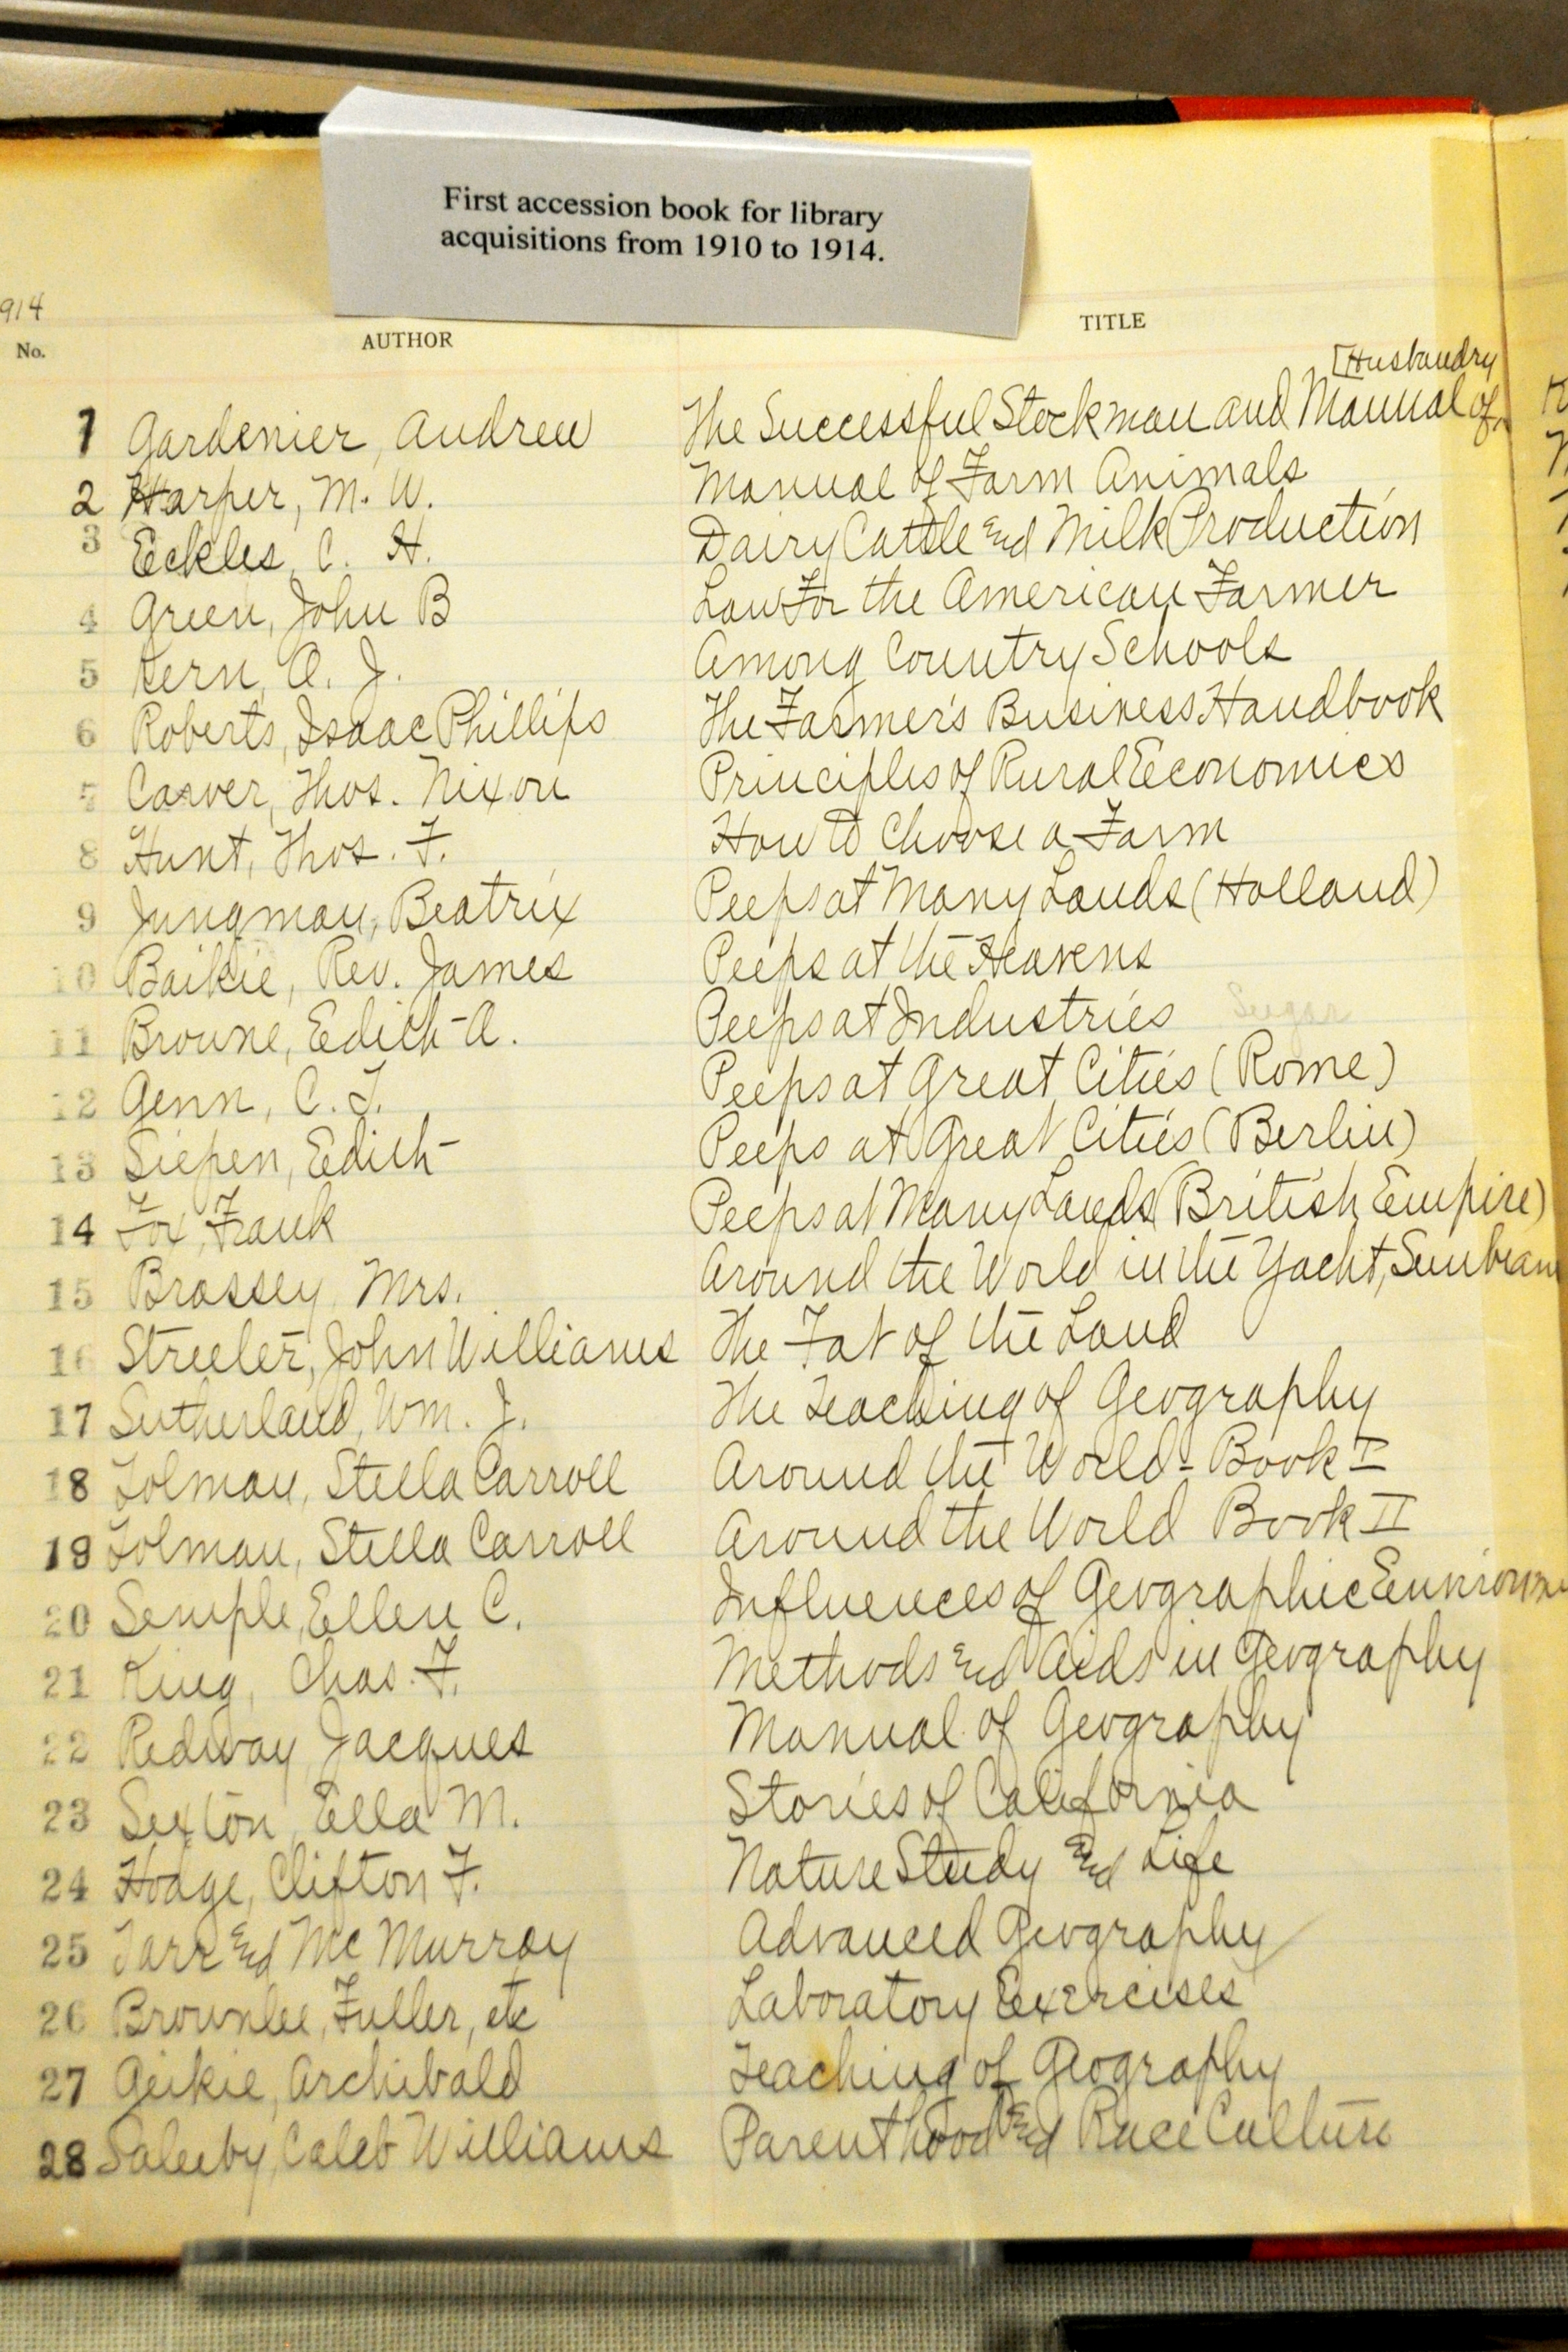 First accession book for library
acquisitions from 1910 to 1914.
914
No. AUTHOR TITLE
[Husbandry
1 Gardenier, Andrew The Successful Stockman and Manual of
2 Harper, M. W. Manual of Farm Animals
3 Eckles, C. H. Dairy Cattle and Milk Production
4 Green, John B Law For the American Farmer
5 Kern, O. J. Among Country Schools
6 Roberts, Isaac Phillips The Farmer's Business Handbook
7 Carver, Thos. Nixon Principles of Rural Economics
8 Hunt, Thos. F. How to Choose a Farm
9 Jungman, Beatrix Peeps at Many Lands (Holland)
10 Baikie, Rev. James Peeps at the Heavens
11 Browne, Edith A. Peeps at Industries Sugar
12 Genn, C. T. Peeps at Great Cities (Rome)
13 Siepen, Edith Peeps at Great Cities (Berlin)
14 Fox, Frank Peeps at Many Lands (British Empire)
15 Brassey Mrs. Around the World in the Yacht, Sunbeam
16 Streeter, John Williams The Fat of the Land
17 Sutherland, Wm. J. The Teaching of Geography
18 Tolman, Stella Carroll Around the World - Book I
19 Tolman, Stella Carroll Around the World Book II
20 Semple, Ellen C. Influences of Geographic
21 King, Chas. F. Methods and Aids in Geography
22 Redway Jacques Manual of Geography
23 Sexton, Ella M. Stories of California
24 Hodge, Clifton F. Nature Study and Life
25 Tarr and McMurray Advanced Geography
26 Brownlee, Fuller, etc Laboratory Exercises
27 Geikie, Archibald Teaching of Geography
28 Saleeby, Caleb Williams Parenthood and Race Culture